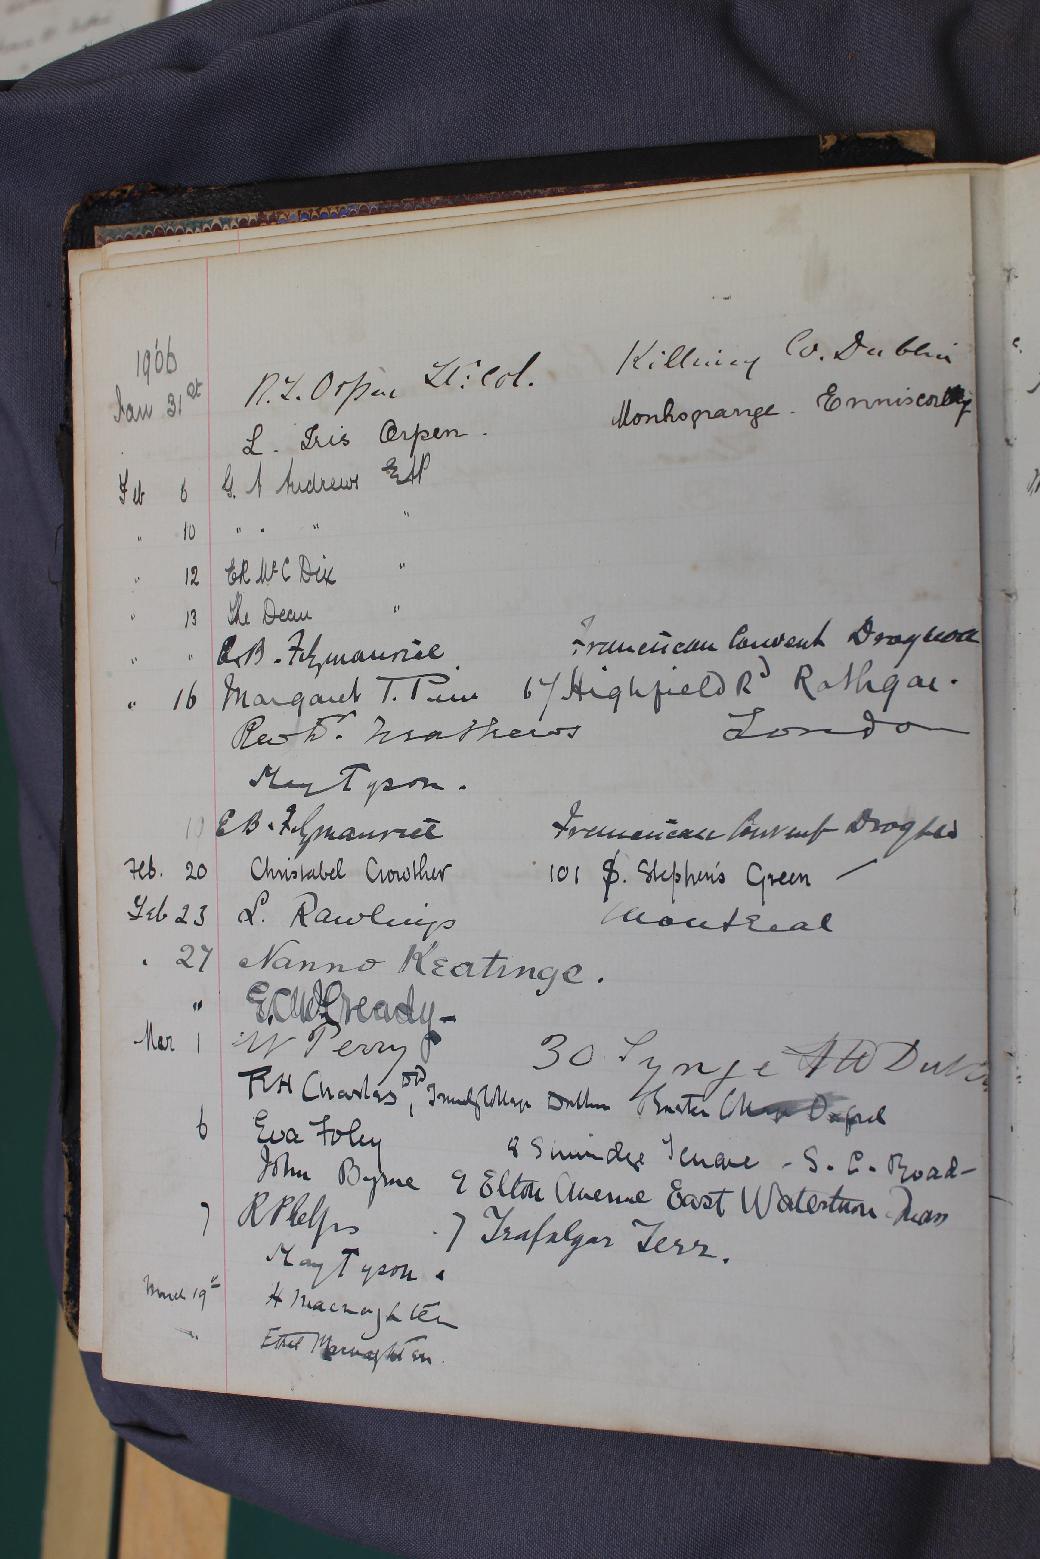 1906
Jan 31st R. L. Orpen Lt: Col. Killiney Co. Dublin
L. Iris Orpen. Monksgrange. Enniscorthy
Feb 6 G. A Andrews
" 10 " " " "
" 12 ER McC Dix "
" 13 The Dean "
" " E.B. Fitzmaurice. Franciscan Convent Drogheda
" 16 Margaret T. Pim 67 Highfield Rd Rathgar.
Mathews London
May Tyson.
19 E B. Fitzmaurice Franciscan Convent Drogheda
Feb. 20 Christabel Crowther 101 S. Stephen's Green
Feb 23 L. Rawlings Montreal
" 27 Nanno Keatinge.
"
Mar 1 W Perry 30 Synge St
RH Charles DD, Trinity College Dublin Exeter College Oxford
6 Eva Foley 8 Terrace - S. C. Road
John Byrne 9 Elton Avenue East
7 R Phelps 7 Trafalgar Terr.
May Tyson.
March 19th H Macnaghten
" Ethel Macnaghten.